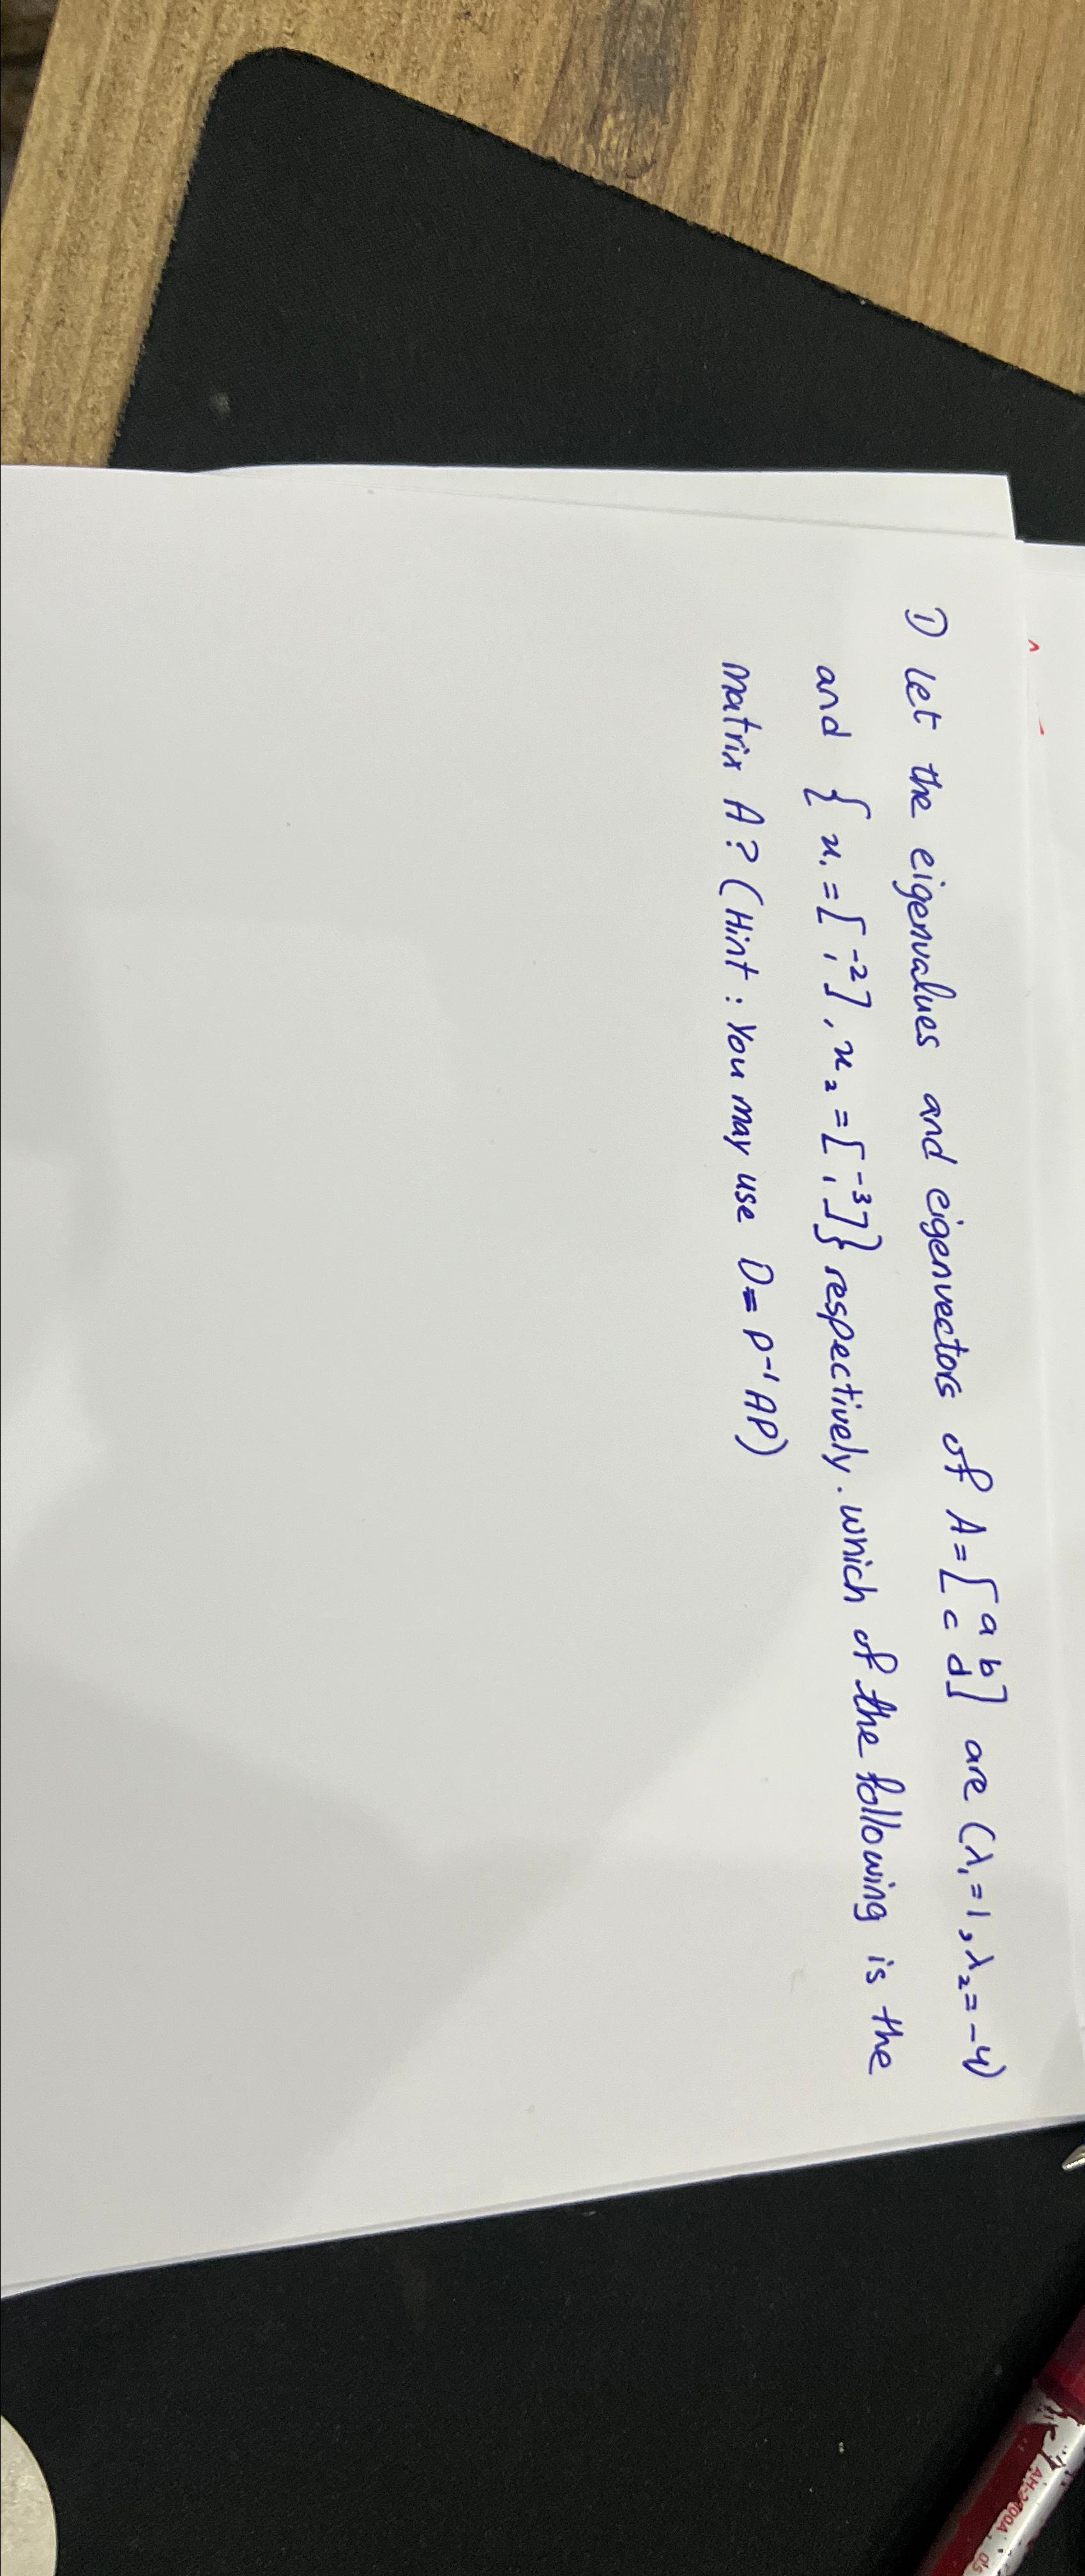 1) Let the eigenvalues and eigenvectors of A=[a b c d] are (λ₁=1, λ₂=-4)
and {x₁=[-2 1], x₂=[-3 1]} respectively. which of the following is the
matrix A? (Hint: You may use D=P⁻¹AP)
AH-2700A 05